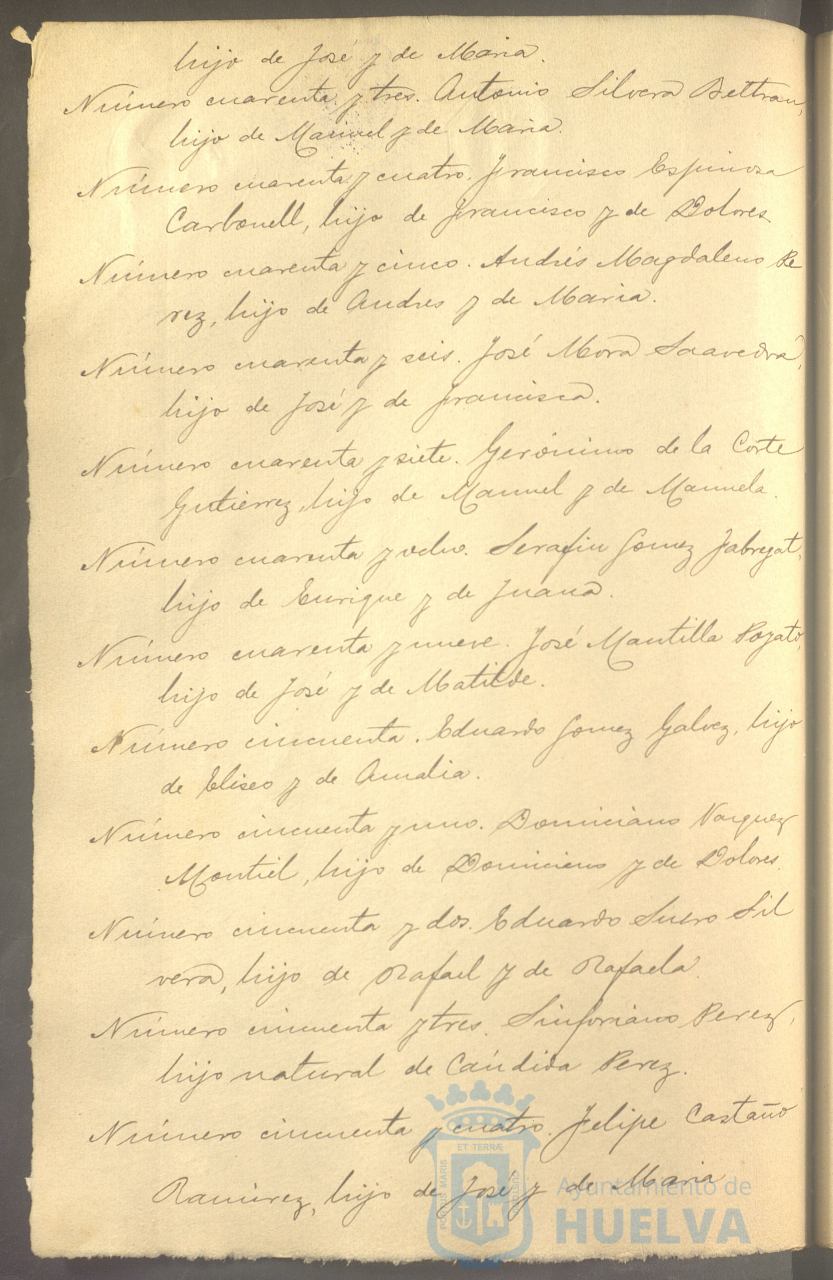 hijo de José y de Maria.
Número cuarenta y tres. Antonio Silvera Beltran,
hijo de Manuel y de Maria.
Número cuarenta y cuatro. Francisco Espinosa
Carbonell, hijo de Francisco y de Dolores
Número cuarenta y cinco. Andrés Magdaleno Pe
rez, hijo de Andres y de Maria.
Número cuarenta y seis. José Mora Saavedra,
hijo de José y de Francisca.
Número cuarenta y siete. Gerónimo de la Corte
Gutiérrez, hijo de Manuel y de Manuela.
Número cuarenta y ocho. Serafin Gomez Fabregat,
hijo de Enrique y de Juana.
Número cuarenta y nueve. José Mantilla Poyato,
hijo de José y de Matilde.
Número cincuenta. Eduardo Gomez Galvez, hijo
de Eliseo y de Amalia.
Número cincuenta y uno. Domiciano Vazquez
Montiel, hijo de Domiciano y de Dolores.
Número cincuenta y dos. Eduardo Suero Sil
vera, hijo de Rafael y de Rafaela.
Número cincuenta y tres. Sinforiano Perez,
hijo natural de Cándida Perez.
Número cincuenta y cuatro. Felipe Castaño
Ramirez, hijo de José y de Maria
ET TERRÆ
PORTUS MARIS
Ayuntamiento de
HUELVA